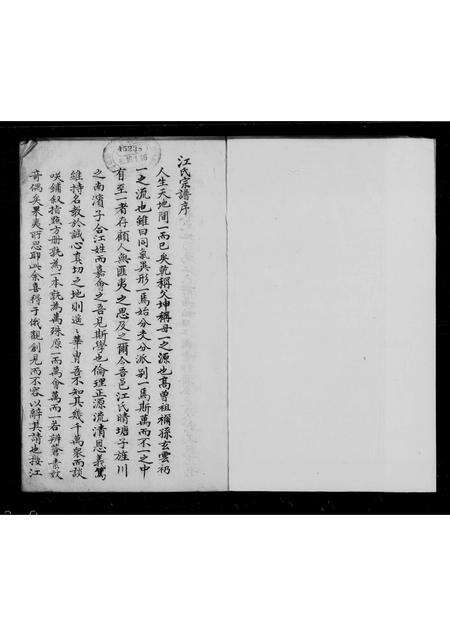 江氏宗譜序
人生天地間一而已矣乾稱父坤稱母一之源也高曾祖禰孫玄雲礽
一之流也雖曰同氣異形一焉始分支分派別一焉斯萬而不一之中
有至一者存顧人無匪夷之思及之爾今吾邑江氏晴塘子旌川
之南濱子合江姓而嘉會之吾見斯學也倫理正源流清恩義篤
維持名教於誠心真切之地則遥遥華胄吾不知其幾千萬眾而談
咲鋪叙指點方冊孰為一本孰為萬殊原一而萬會萬而一若辨蒼素数
奇偶矣果夷所思耶此余喜得于俄覩創見而不容以辭其請也按江